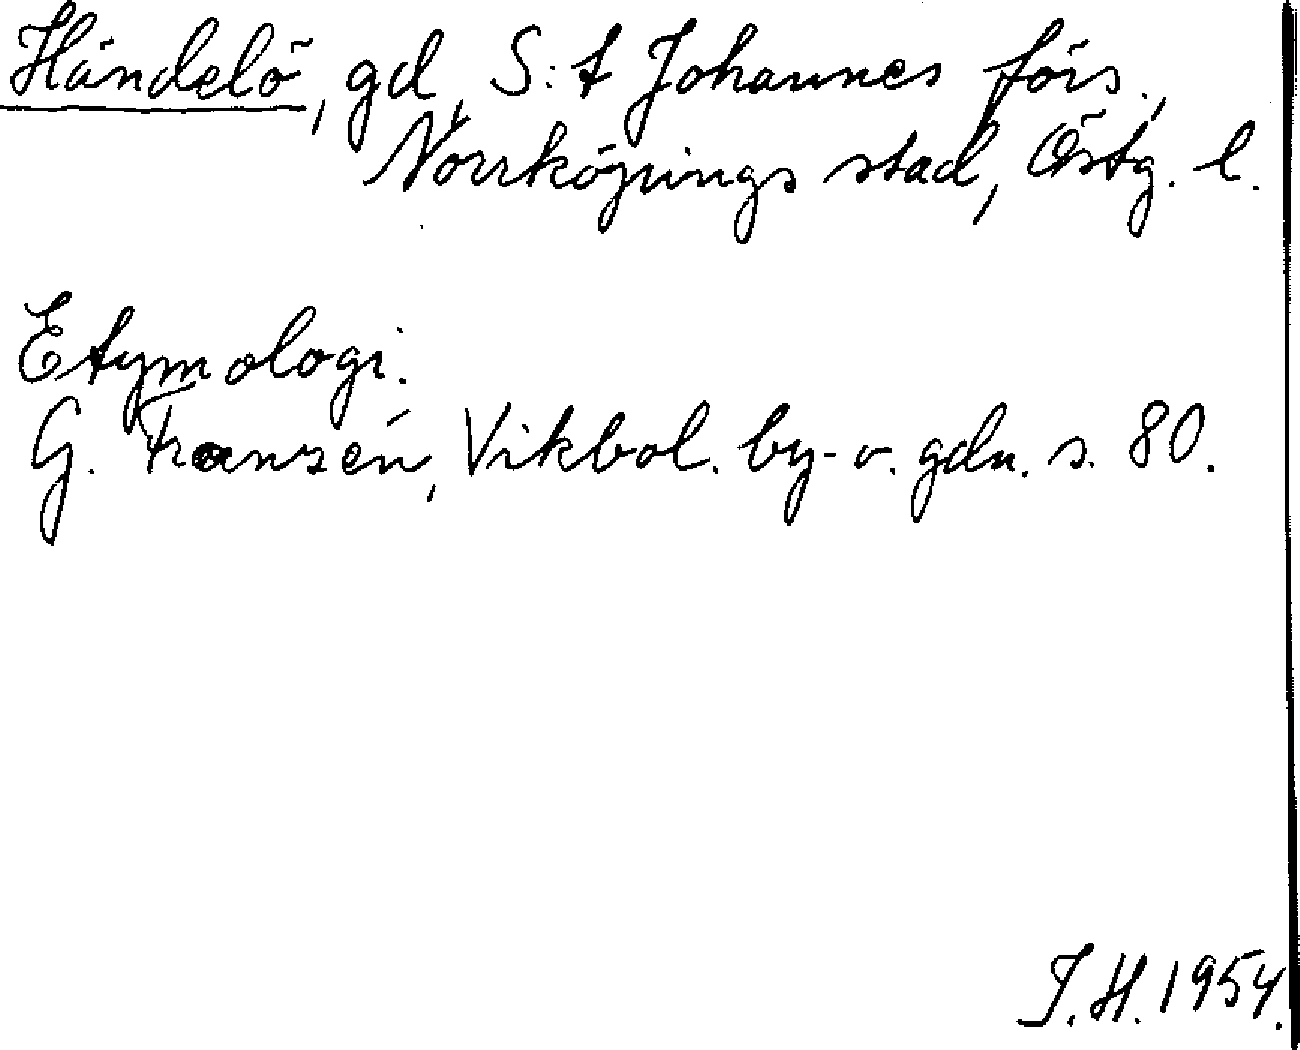 Händelö, gd, S:t Johannes förs.,
Norrköpings stad, Östg. l.
Etymologi.
G. Franzén, Vikbol. by- o. gdn. s. 80.
J.H. 1954.